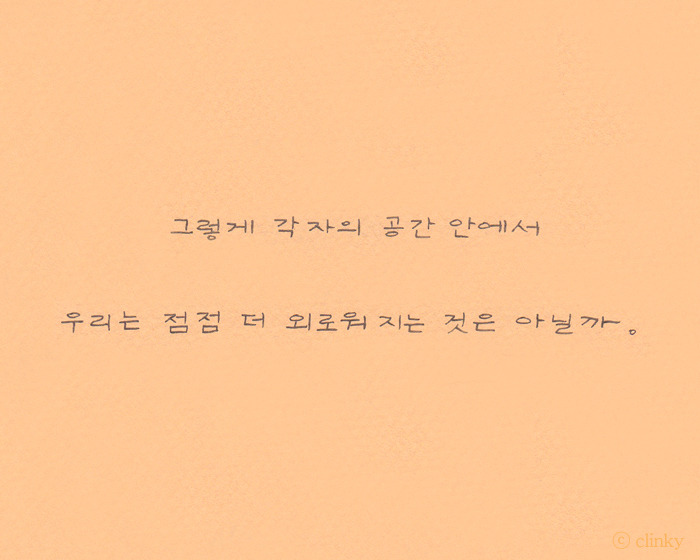 그렇게 각자의 공간 안에서
우리는 점점 더 외로워지는 것은 아닐까。
ⓒ clinky